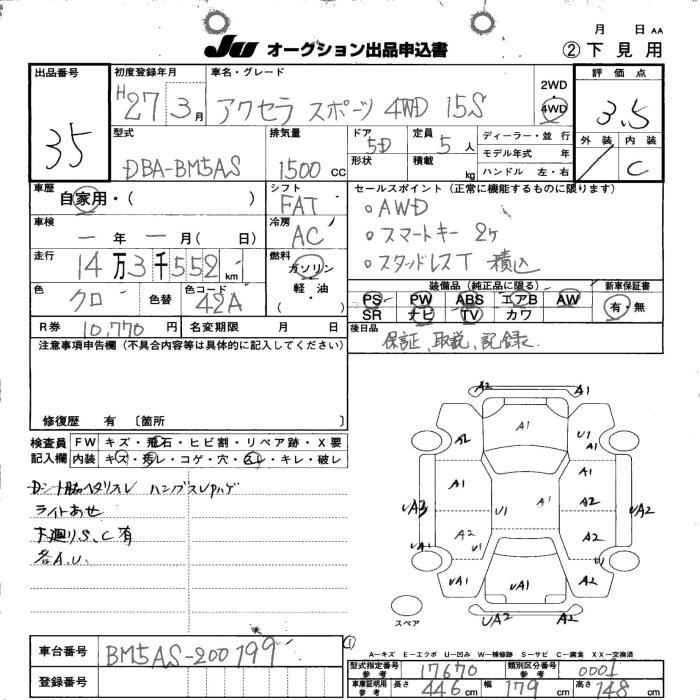 月 日 AA
JU オークション出品申込書 ②下見用
出品番号 35
初度登録年月 H27 3月
車名・グレード アクセラ スポーツ 4WD 15S
2WD 4WD
評価点 3.5
外装 / 内装 C
型式 DBA-BM5AS
排気量 1500 CC
ドア 5D 形状
定員 5人 積載 kg
ディーラー・並行
モデル年式 年
ハンドル 左・右
車歴 自家用・( )
シフト FAT
セールスポイント(正常に機能するものに限ります)
。AWD
。スマートキー 2ケ
。スタッドレスT 積込
車検 ー年ー月( 日)
冷房 AC
走行 14万3千552km
燃料 ガソリン 軽油 ・( )
色 クロ 色替 色コード 42A
装備品(純正品に限る) 新車保証書
PS PW ABS エアB AW 有・無
SR ナビ TV カワ
R券 10,770円 名変期限 月 日
後日品 保証、取説、記録
注意事項申告欄(不具合内容等は具体的に記入してください)
修復歴 有 〔箇所 〕
検査員記入欄
FW キズ・飛石・ヒビ割・リペア跡・X要
内装 キズ・汚レ・コゲ・穴・スレ・キレ・破レ
ライトあせ
下廻りS、C有
各A.U.
A2 A1
A2 A1 U1
A1
A1 A1
UA3 U1 A1 A2 UA2
A2 U1 A2
UA1 UA1 A2
UA2 A2
スペア
A−キズ E−エクボ U−凹み W−補修跡 S−サビ C−腐食 XX−交換済
車台番号 BM5AS-200799
登録番号
①
型式指定番号 参考 17670 類別区分番号 参考 0001
車庫証明用 参考 長さ 446cm 幅 179cm 高さ 148cm